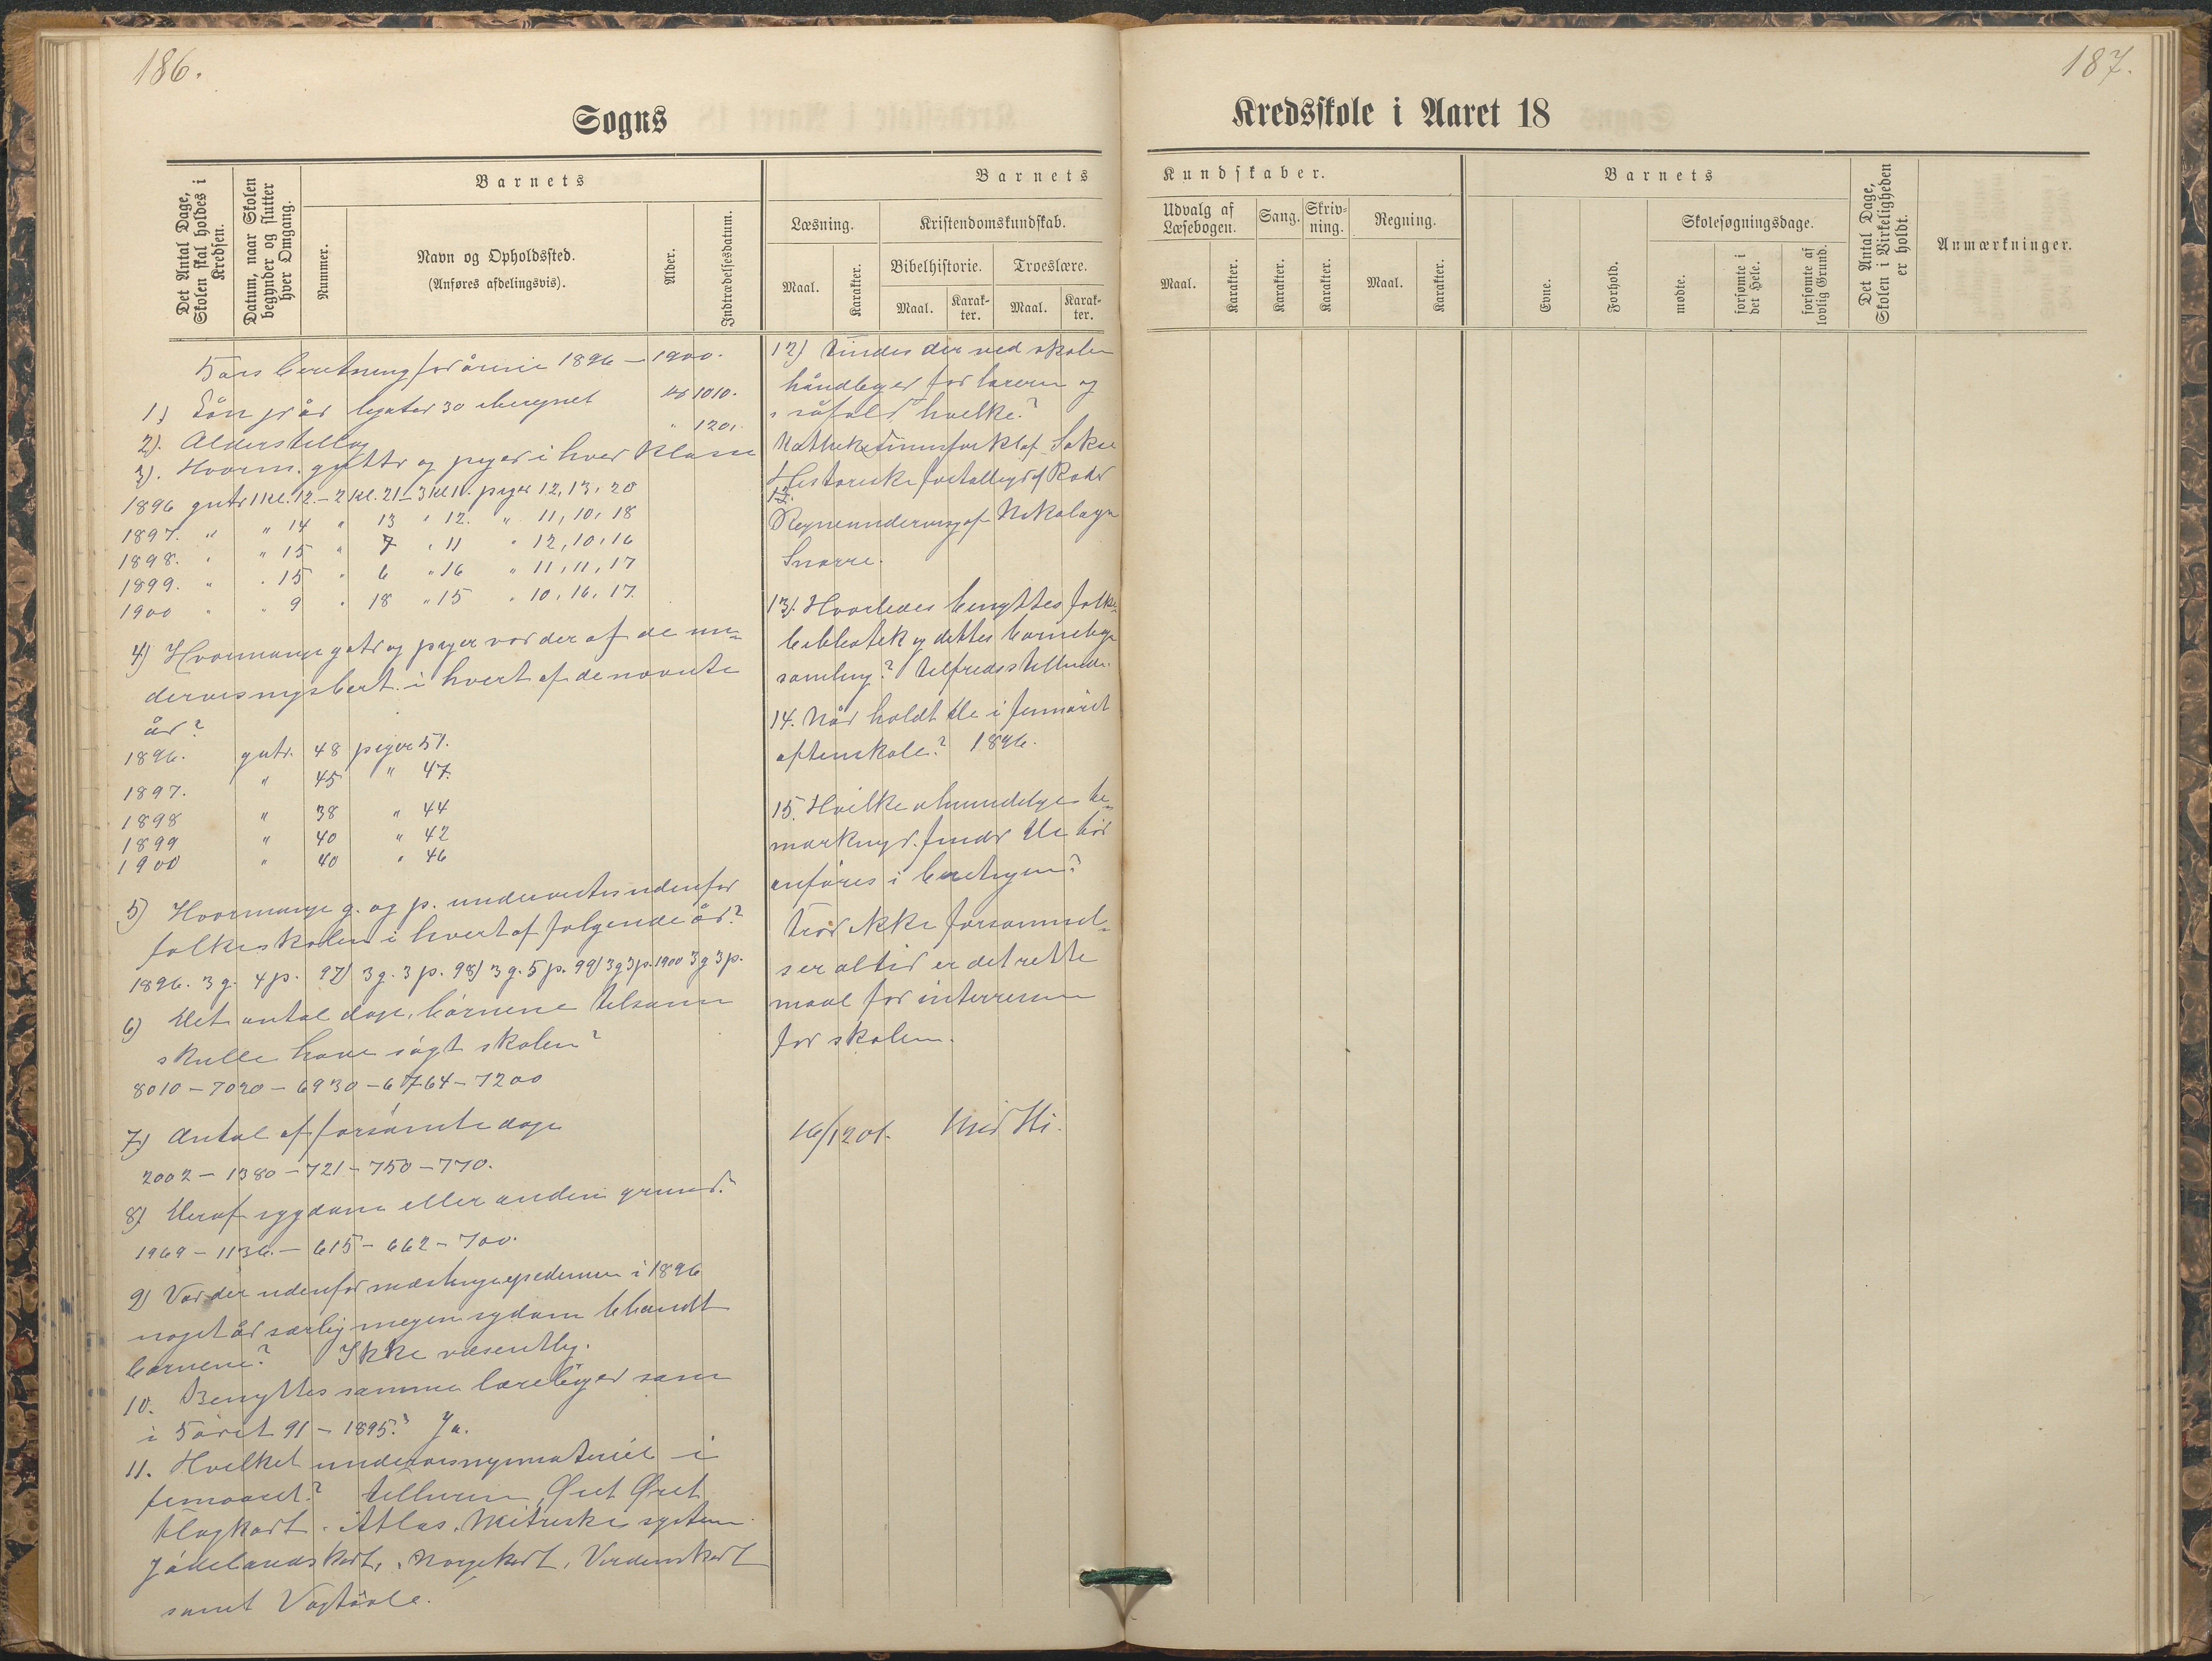 186.
Sogns
Det Antal Dage, Skolen skal holdes i Kredsen.
Datum, naar Skolen begynder og slutter hver Omgang.
Barnets
Nummer.
Navn og Opholdssted.
(Anføres afdelingsvis).
Alder.
Indtrædelsesdatum.
Barnets
Læsning.
Kristendomskundskab.
Bibelhistorie.
Troeslære.
Maal.
Karakter.
Maal.
Karak-ter.
Maal.
Karak-ter.
5års beretning for årene 1896 – 1900.
1) Lön pr år 1010.
2). Alderstillæg " 120,.
3). Hvorm. gutter og piger i hver klasse
1896 gutr 1 kl. 12. – 2 kl. 21 – 3 kl 11. piger 12, 13, 20
1897. " " 14 " 13 " 12. " 11, 10, 18
1898. " " 15 " 7 " 11 " 12, 10, 16
1899. " " 15 " 6 " 16 " 11, 11, 17
1900 " " 9 " 18 " 15 " 10, 16, 17.
4) Hvormange gutr og piger var der af de un-
dervisningsbert. i hvert af de nævnte
år?
1896. gutr. 48 piger 51.
1897. " 45 " 47.
1898 " 38 " 44
1899 " 40 " 42
1900 " 40 " 46
5) Hvormange g. og p. undervistes udenfor
folkeskolen i hvert af følgende år?
1896. 3 g. 4 p. 97) 3 g. 3 p. 98) 3 g. 5 p. 99) 3 g 3 p. 1900 3 g 3 p.
6) Det antal dage, börnene tilsamm
skulle have sögt skolen?
8010 – 7020 – 6930 – 6764 – 7200
7) Antal af forsömte dage
2002 – 1380 – 721 – 750 – 770.
8) Heraf sygdom eller anden grund?
1969 – 1136. – 615 – 662 – 700.
9) Var der udenfor mæslingeepedemien i 1896
noget år særlig megen sygdom blandt
børnene? Ikke væsentlig.
10. Benyttes samme lærebøger som
i 5 året 91 – 1895? Ja.
11. Hvilket undervisningsmateriel i
femaaret? Tellurium,
Flagkart. Atlas. Metriske system.
Jödelandskart, Norgekart, Verdenskart
samt Vægtavle.
12) Findes der ved skolen
håndbøger for læreren og
i såfald hvilke?
Katekismusforkl af
Historiske fortællinger af
13.
Regneundervisng af Nikolaysen
13). Hvorledes benyttes folke-
bibliotek og dettes barnebog-
samling? Tilfredsstillende.
14. Når holdt De i femåret
aftenskole? 1896.
15. Hvilke almindelige be-
mærkngr. finder De bör
anføres i beretngen?
Tror ikke forsømmel-
ser altid er det rette
maal for interessen
for skolen.
16/12 01.
187.
Kredsskole i Aaret 18
Kundskaber.
Udvalg af Læsebogen.
Sang.
Skriv-ning.
Regning.
Maal.
Karakter.
Karakter.
Karakter.
Maal.
Karakter.
Barnets
Evne.
Forhold.
Skolesøgningsdage.
mødte.
forsømte i det Hele.
forsømte af lovlig Grund.
Det Antal Dage, Skolen i Virkeligheden er holdt.
Anmærkninger.